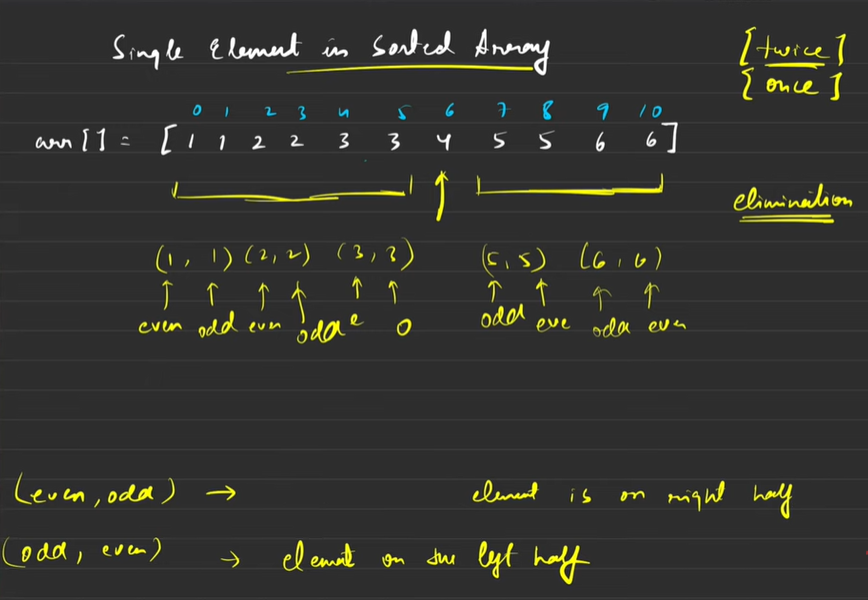 Single Element in Sorted Array
[twice]
[once]
0 1 2 3 4 5 6 7 8 9 10
arr[] = [1 1 2 2 3 3 4 5 5 6 6]
elimination
(1, 1) (2, 2) (3, 3) (5, 5) (6, 6)
even odd even odd e o odd eve odd even
(even, odd) → element is on right half
(odd, even) → element on the left half